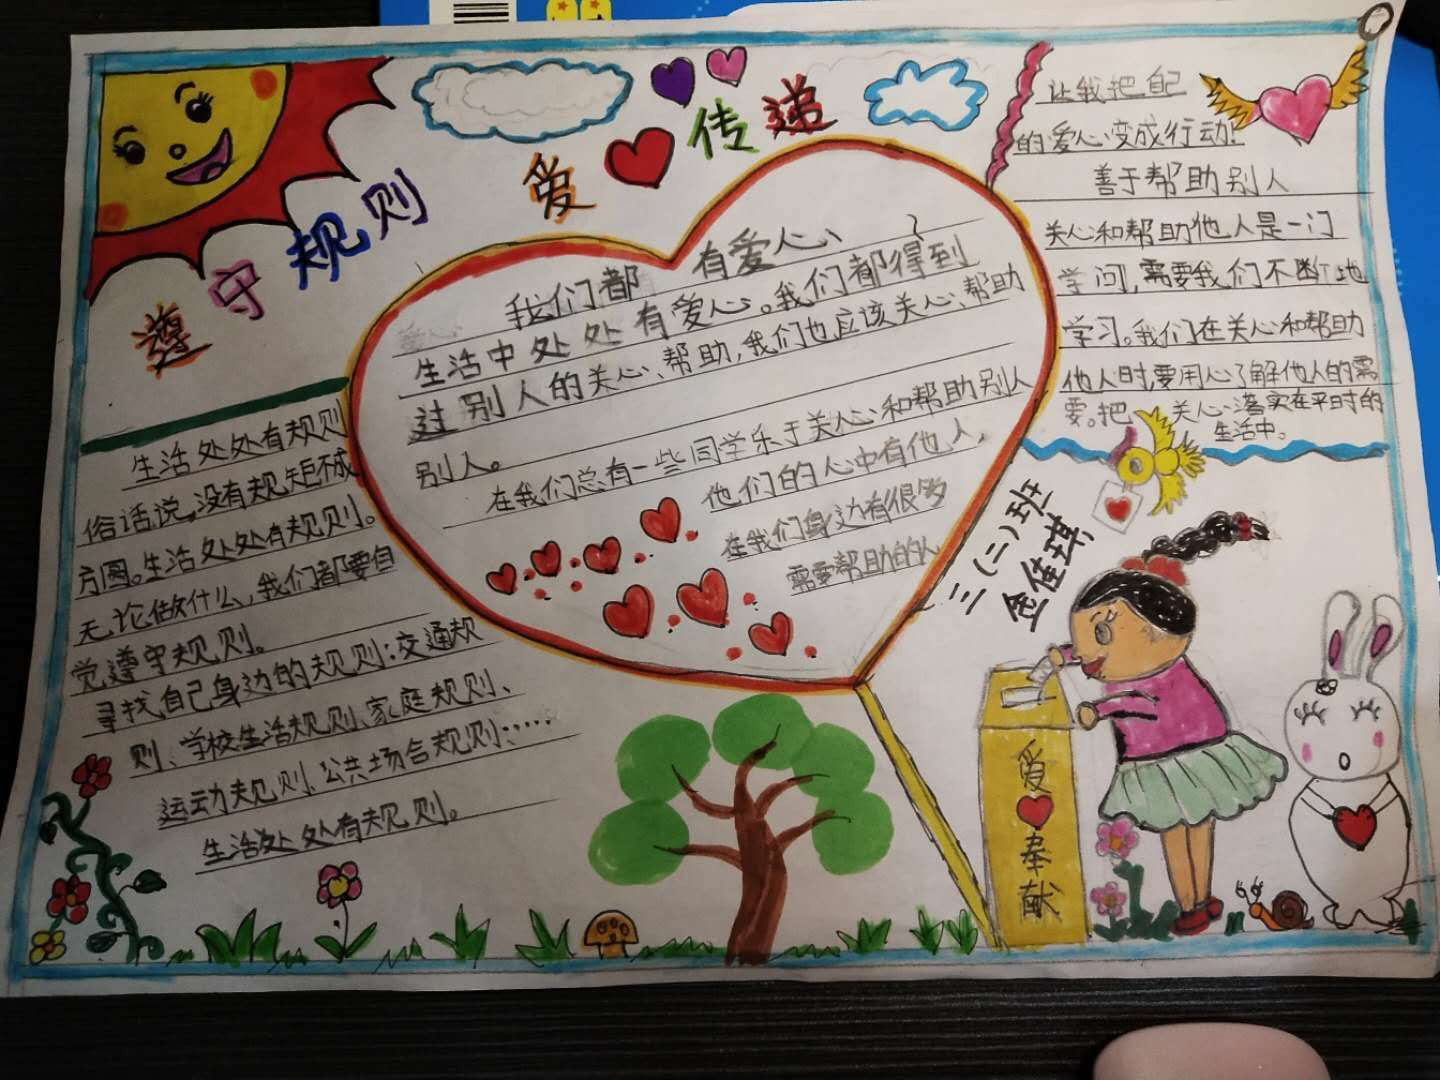 遵守规则
爱
传递
生活处处有规则
俗话说,没有规矩不成
方圆。生活处处有规则。
无论做什么,我们都要自
觉遵守规则。
寻找自己身边的规则:交通规
则、学校生活规则、家庭规则、
运动规则、公共场合规则:……
生活处处有规则。
我们都有爱心、
生活中处处有爱心。我们都得到
过别人的关心、帮助,我们也应该关心、帮助
别人。
在我们总有一些同学乐于关心和帮助别人
他们的心中有他人,
在我们身边有很多
需要帮助的人
让我把自己
的爱心变成行动!
善于帮助别人
关心和帮助他人是一门
学问,需要我们不断地
学习。我们在关心和帮助
他人时,要用心了解他人的需
要。把关心落实在平时的
生活中。
三(二)班
金佳琪
爱
奉献